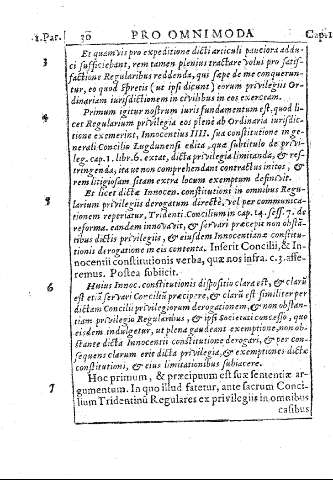 1.Par. 30 PRO OMNIMODA Cap.1
Et quamvis pro expeditione dicti articuli pauciora addu-
3 ci sufficiebant, rem tamen plenius tractare volui pro satis-
factione Regularibus reddenda, qui sæpe de me conquerun-
tur, eo quod spretis (ut ipsi dicunt) eorum privilegiis Or-
dinariam iurisdictionem in civilibus in eos exerceam.
4 Primum igitur nostrum iuris fundamentum est. quod li-
cet Regularium privilegia eos plene ab Ordinaria iurisdic-
tione exemerint, Innocentius IIII. sua constitutione in ge-
nerali Concilio Lugdunensi edita, quæ subtitulo de privi-
leg. cap. 1. libr. 6. extat, dicta privilegia limitanda, & res-
tringenda, ita ut non comprehendant contractus initos, &
rem litigiosam sitam extra locum exemptum definivit.
5 Et licet dictæ Innocen. constitutioni in omnibus Regu-
larium privilegiis derogatum directè, vel per communica-
tionem reperiatur, Trident. Concilium in cap. 14. sess. 7. de
reforma. eandem innovavit, & servari præcepit non obstã-
tibus dictis privilegiis, & eiusdem Innocentianæ constitu-
tionis derogatione in eis contenta. Inserit Concilii, & In-
nocentii constitutionis verba, quæ nos infra. c.3. asse-
remus. Postea subiicit.
6 Huius Innoc. constitutionis dispositio clara est, & clarũ
est etiã servari Conciliũ præcipere, & clarũ est similiter per
dictam Concilii privilegiorum derogationem, & non obstan-
tiam privilegio Regularibus, & ipsi Societati concesso, quo
eisdem indulgetur, ut plena gaudeant exemptione, non ob-
stante dicta Innocentii constitutione derogari, & per con-
sequens clarum erit dicta privilegia, & exemptiones dictæ
constitutioni, & eius limitationibus subiacere.
7 Hoc primum, & præcipuum est suæ sententiæ ar-
gumentum. In quo illud fatetur, ante sacrum Conci-
lium Tridentinũ Regulares ex privilegiis in omnibus
casibus